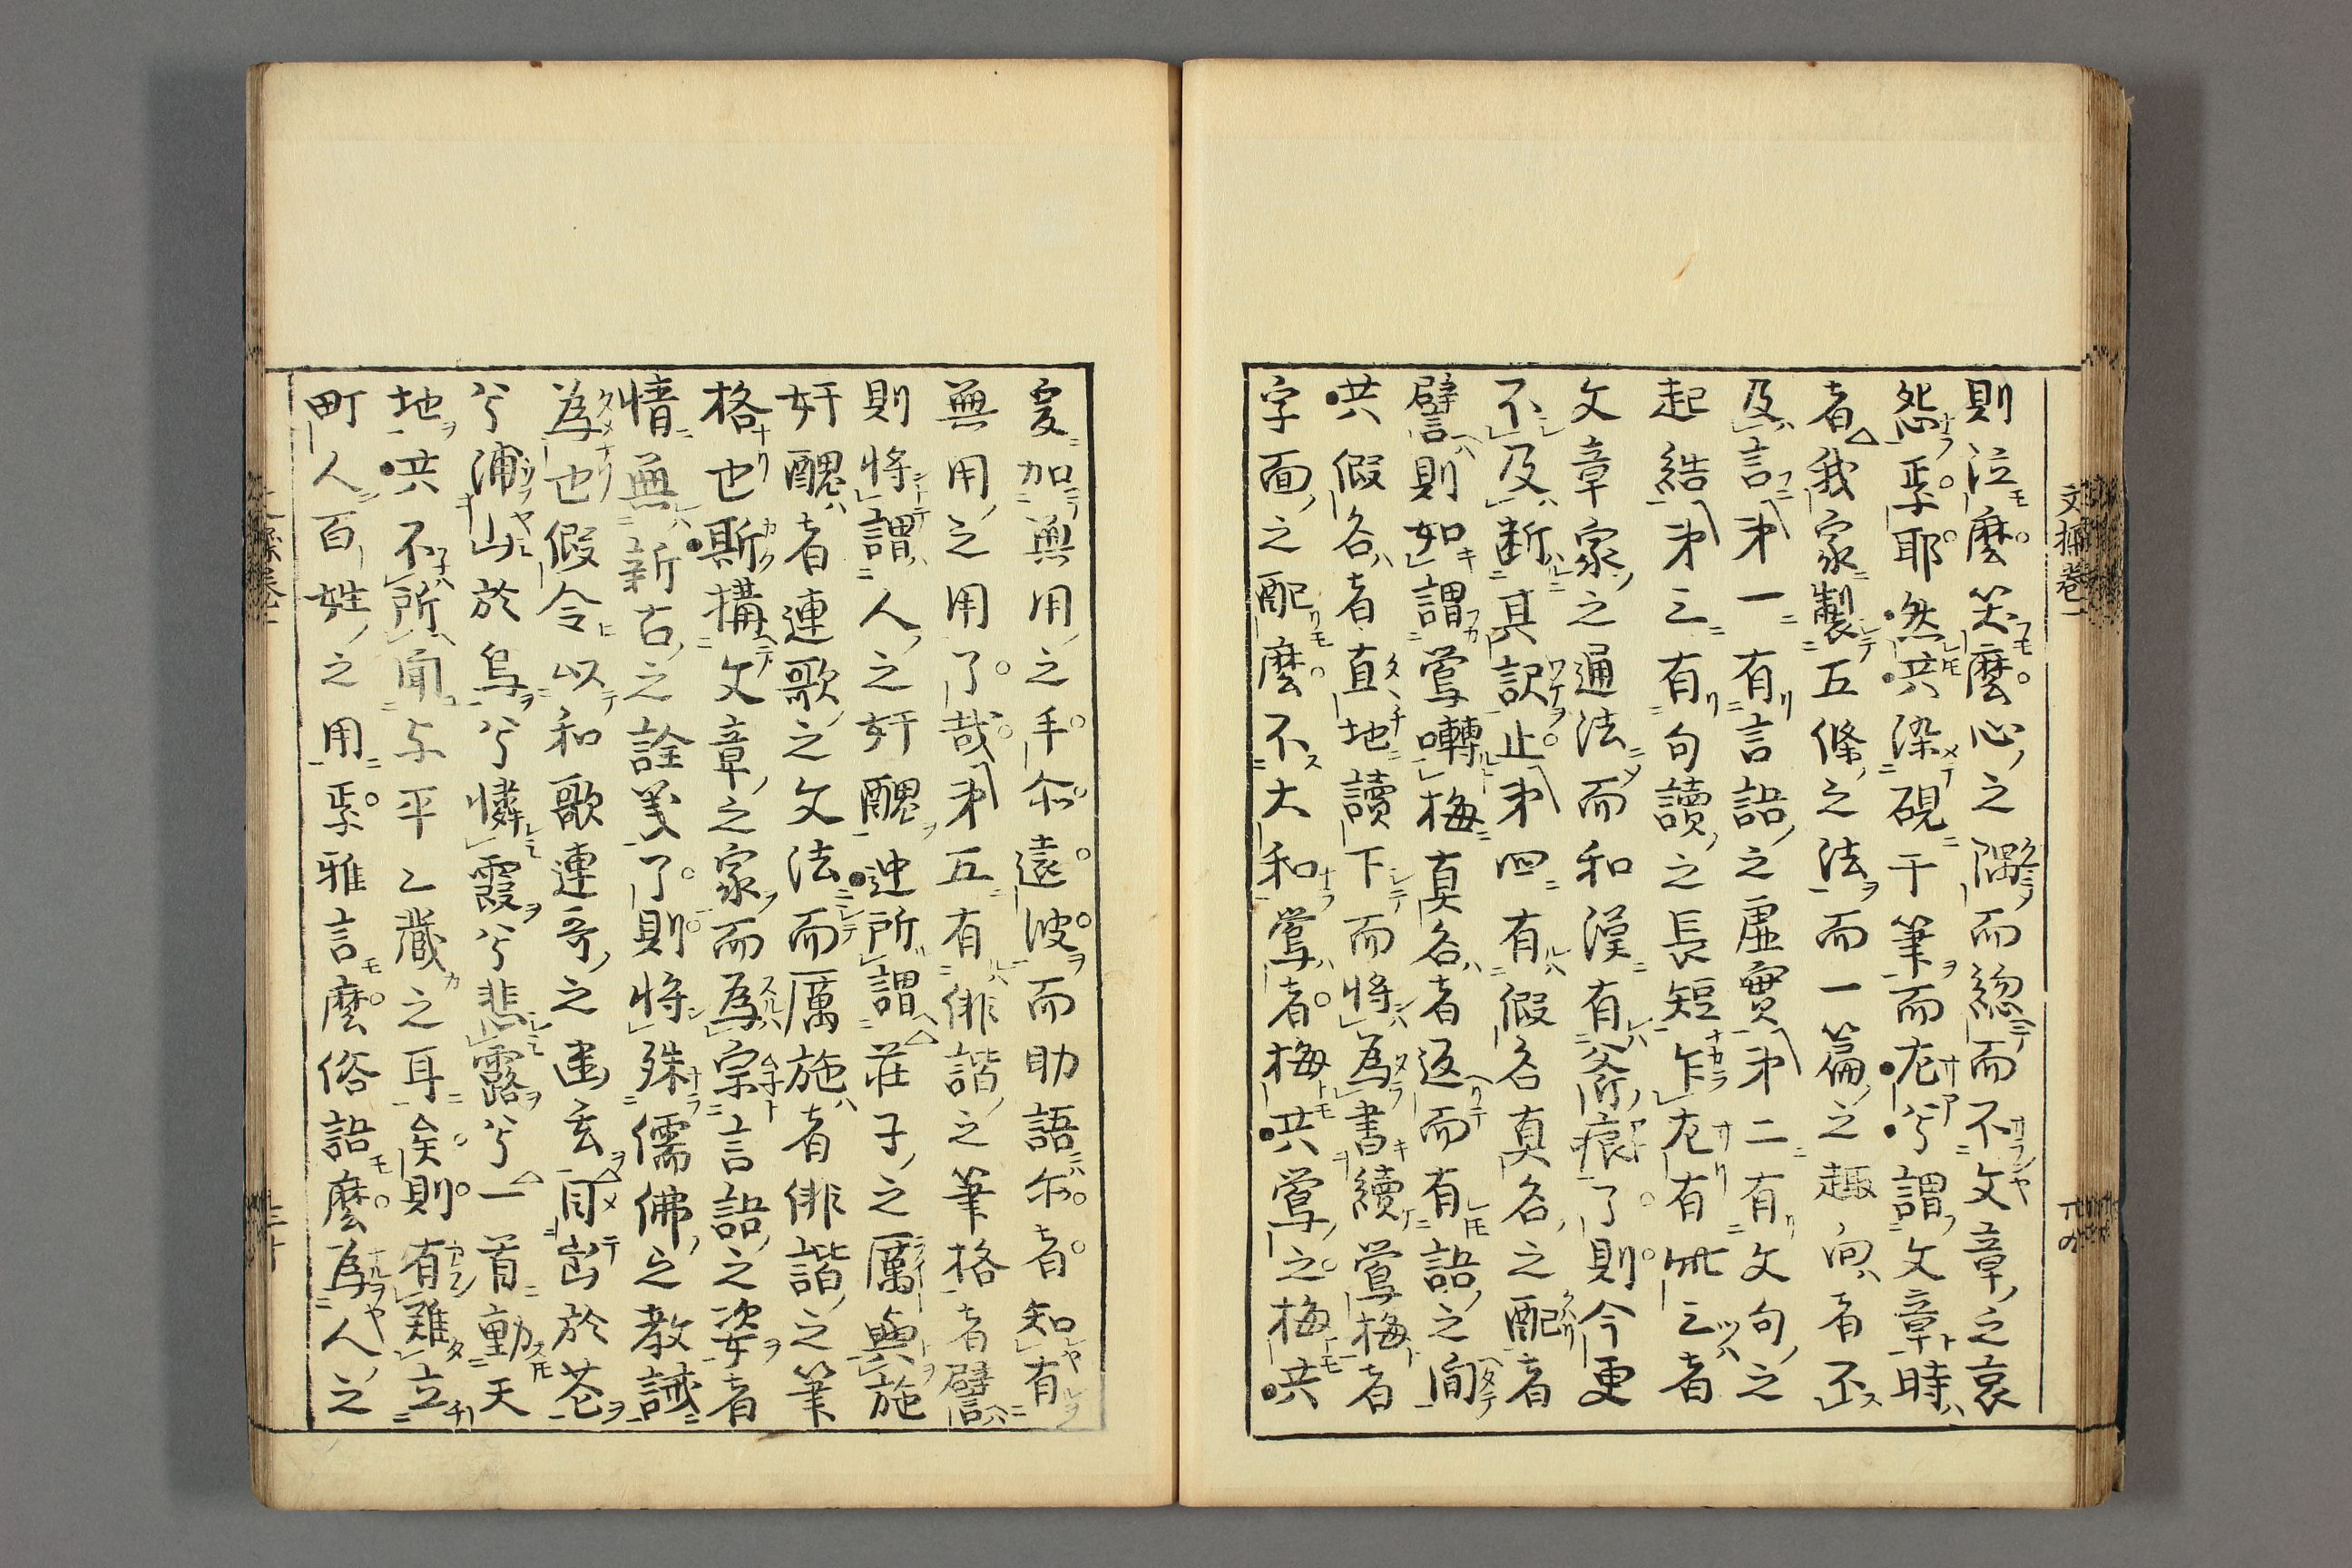 則泣麼笑麼心之隅而總而不文章之哀
怨乎耶然共染硯于筆而左兮謂文章時
者我家製五條之法而一篇之趣向者丕
及言第一有言語之虛實第二有文句之
起結第三有句讀之長短乍左有此三者
文章家之通法而和漢有斧痕了則今更
不及斷其訳止第四有假名真名之配者
譬則如謂鶯囀梅真名者返而有語之間
共假名者直地讀下而將為書續鶯梅者
字面之配麼不大和鶯者梅共鶯之梅共
文操卷一
爰加與用之手尔遠波而助語尔者知有
無用之用了哉第五有俳諧之筆格者譬
則將謂人之奸醜迚所謂莊子之厲與施
奸醜者連歌之文法而厲施者俳諧之筆
格也斯構文章之家而為宗言語之姿者
情無新古之詮義了則將殊儒佛之教誡
為也假令以和歌連哥之幽玄月出於花
兮浦山於鳥兮憐霞兮悲露兮一首動天
地共不所聞与平乙藏之耳矣則有難立
町人百姓之用乎雅言麼俗語麼為人之